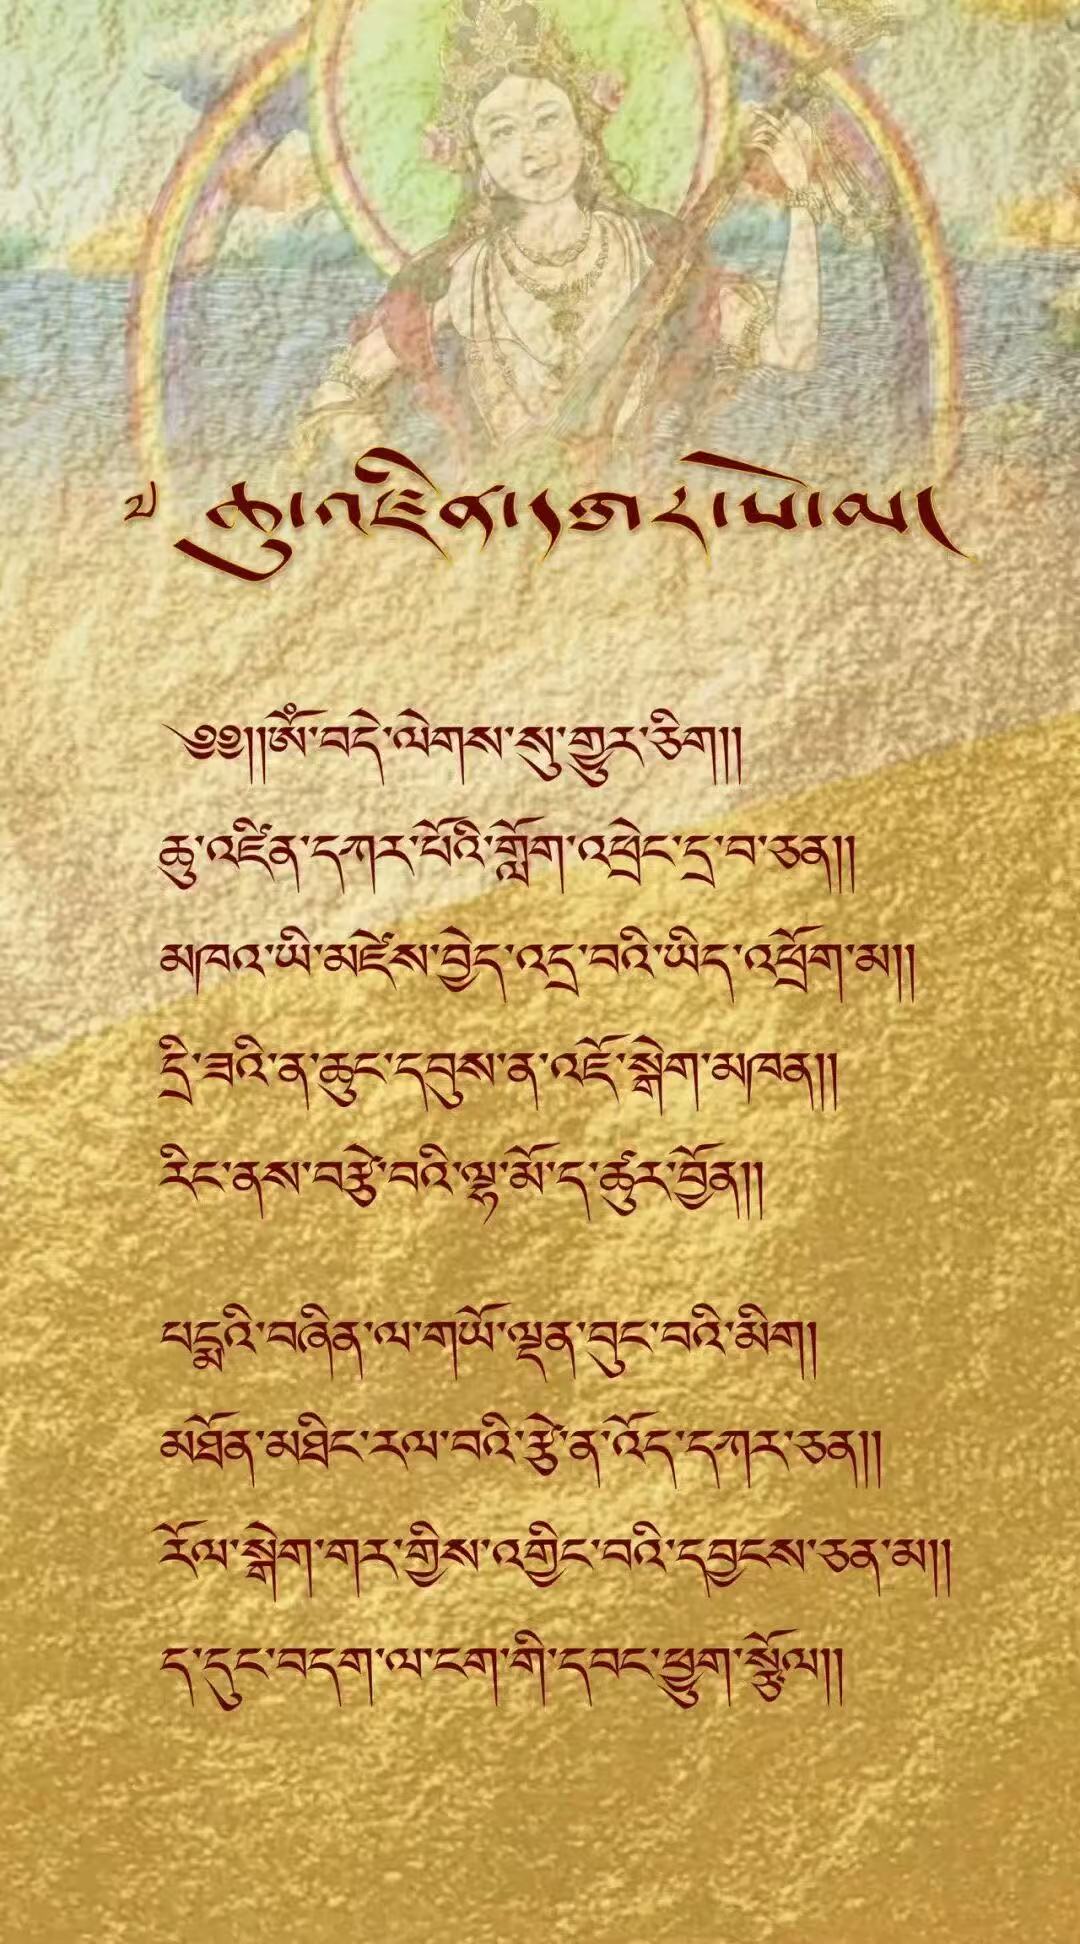 ༄ ཆུ་འཛིན་དཀར་པོ་ལ།
༄༅།།ཨོཾ་བདེ་ལེགས་སུ་གྱུར་ཅིག།།
ཆུ་འཛིན་དཀར་པོའི་གློག་འཕྲེང་དྲ་བ་ཅན།།
མཁའ་ཡི་མཛེས་བྱེད་འདྲ་བའི་ཡིད་འཕྲོག་མ།།
དྲི་ཟའི་ན་ཆུང་དབུས་ན་འཇོ་སྒེག་མཁན།།
རིང་ནས་བརྩེ་བའི་ལྷ་མོ་ད་ཚུར་བྱོན།།
པདྨའི་བཞིན་ལ་གཡོ་ལྡན་བུང་བའི་མིག།
མཐོན་མཐིང་རལ་བའི་རྩེ་ན་འོད་དཀར་ཅན།།
རོལ་སྒེག་གར་གྱིས་འགྱིང་བའི་དབྱངས་ཅན་མ།།
ད་དུང་བདག་ལ་ངག་གི་དབང་ཕྱུག་སྩོལ།།